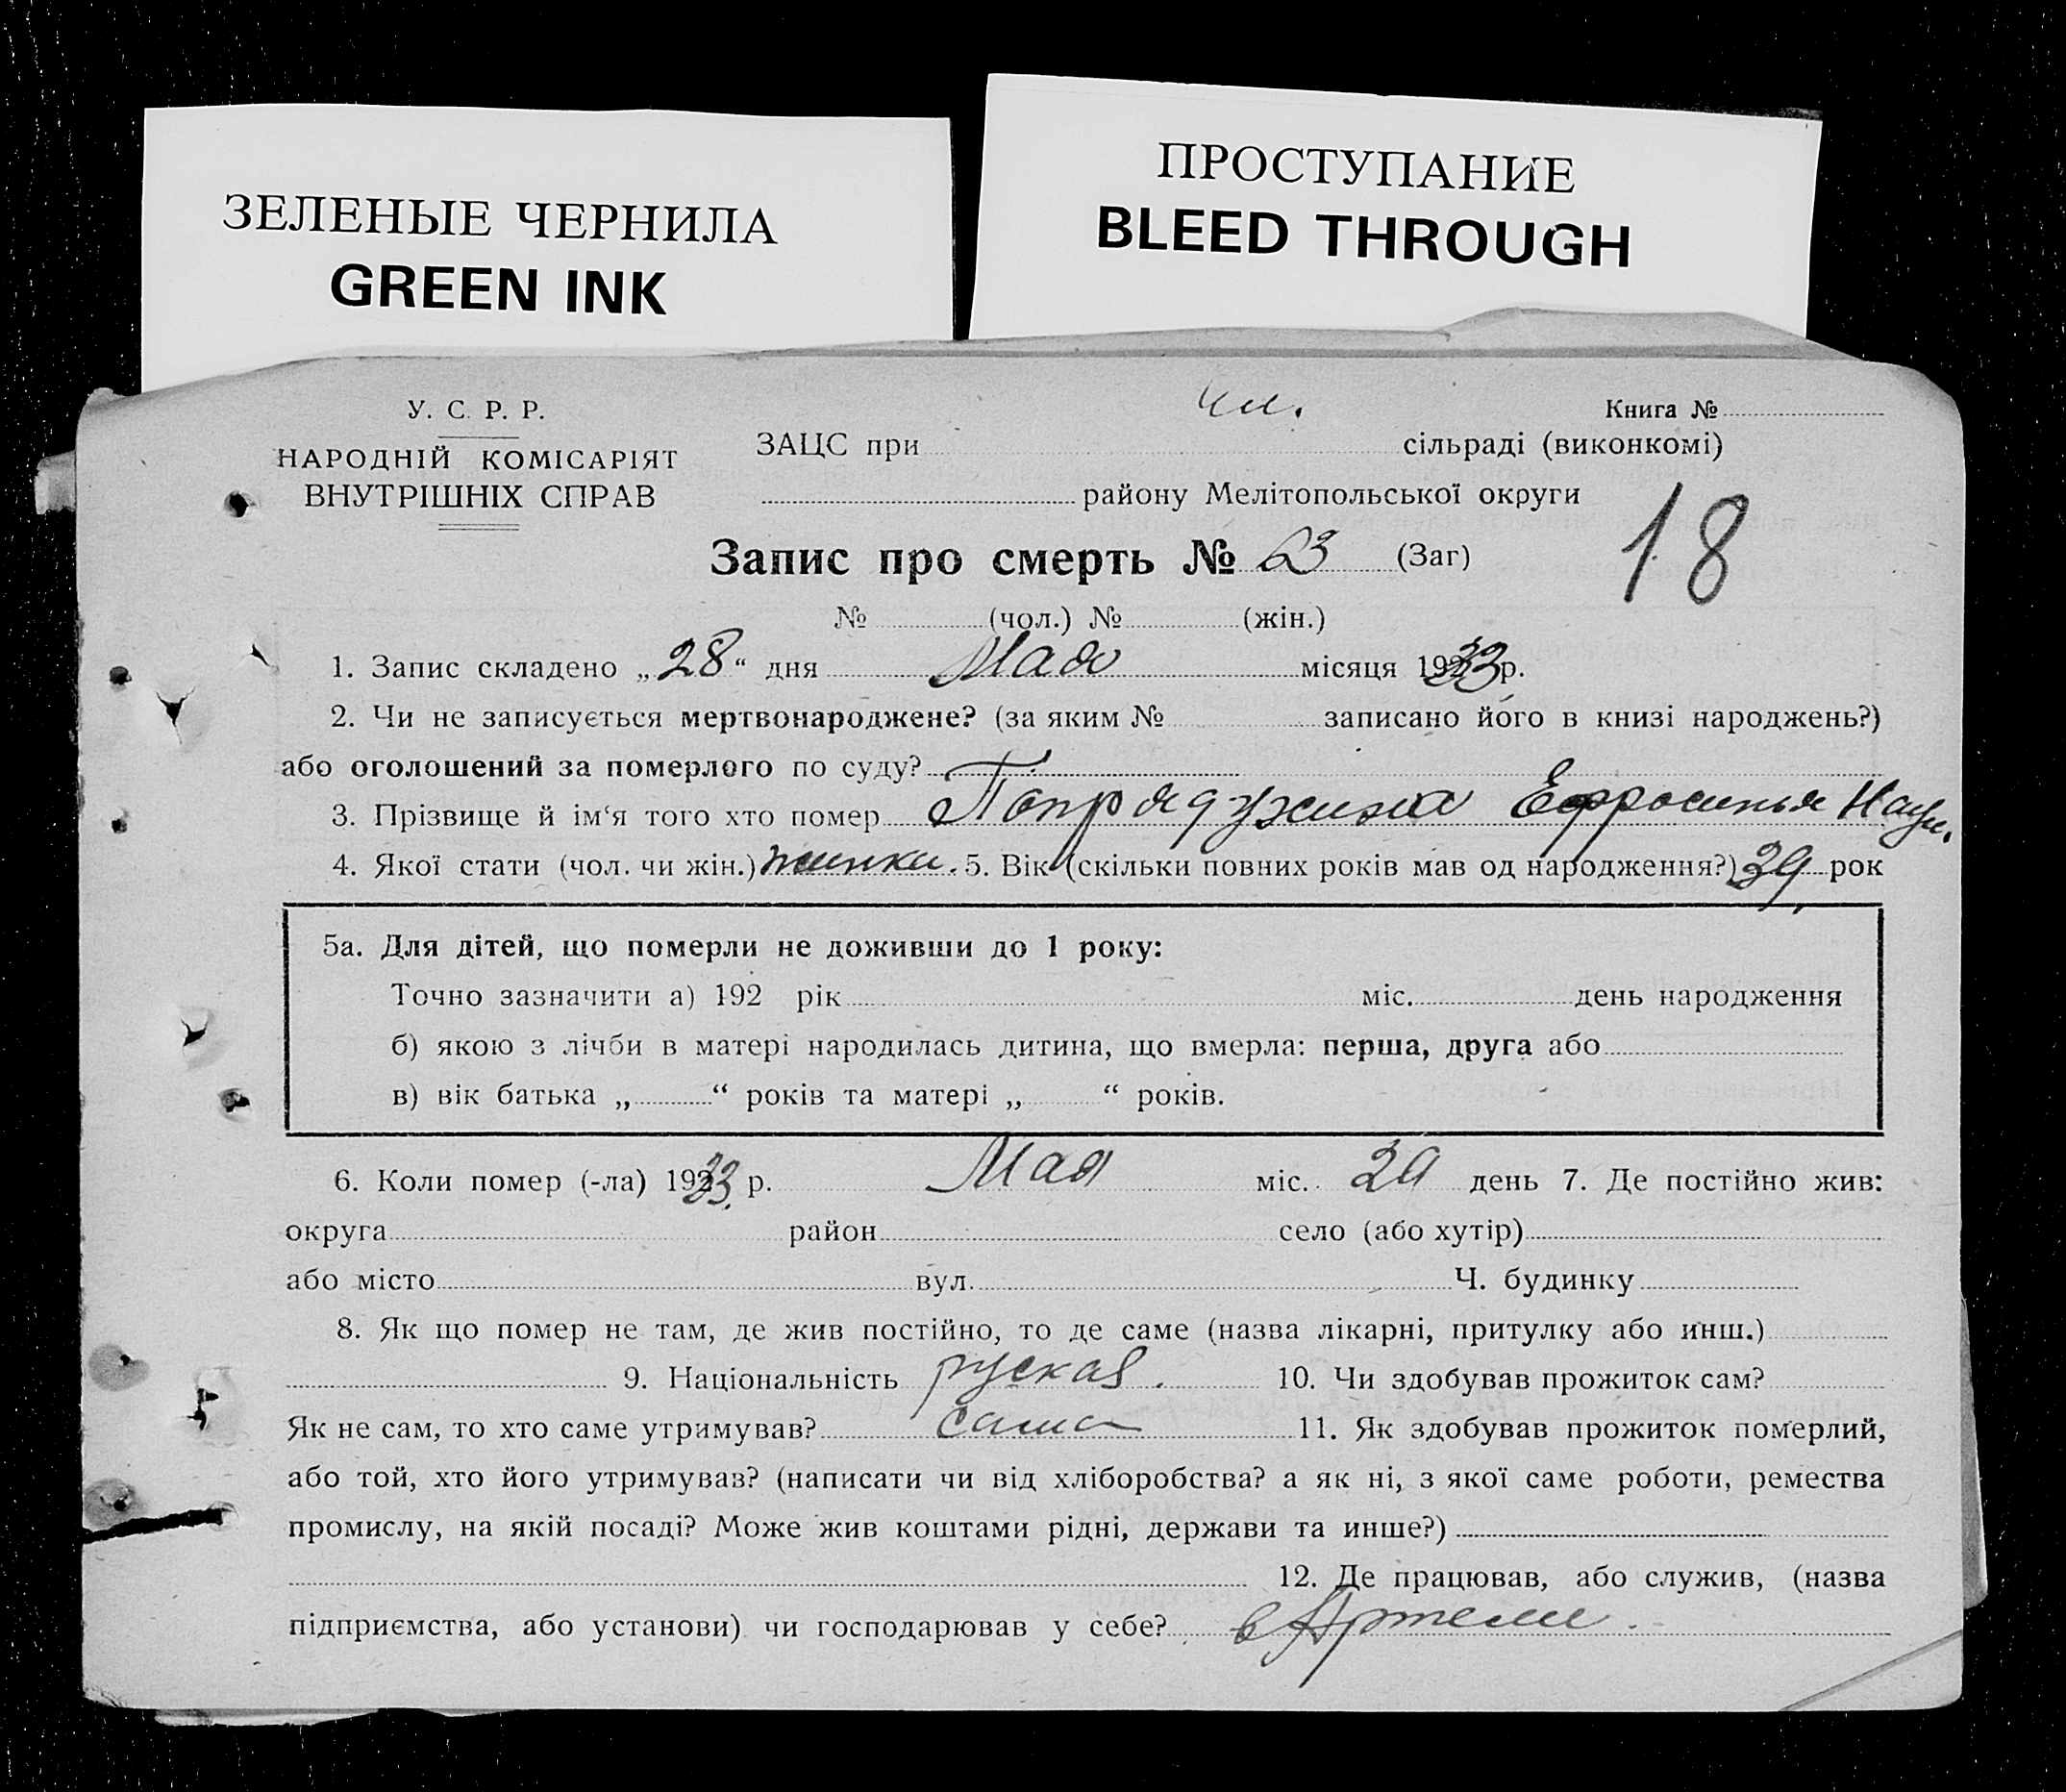 ЗЕЛЕНЫЕ ЧЕРНИЛА
GREEN INK
ПРОСТУПАНИЕ
BLEED THROUGH
У. С. Р. Р.
НАРОДНІЙ КОМІСАРІЯТ
ВНУТРІШНІХ СПРАВ
Книга №
ЗАЦС при сільраді (виконкомі)
району Мелітопольської округи
18
Запис про смерть № 63 (Заг)
№ (чол.) № (жін.)
1. Запис складено „28“ дня Мая місяця 1933 р.
2. Чи не записується мертвонароджене? (за яким № записано його в книзі народжень?)
або оголошений за померлого по суду?
3. Прізвище й ім‘я того хто помер Ефросинья Наум.
4. Якої стати (чол. чи жін.) 5. Вік (скільки повних років мав од народження?) 39 рок
5а. Для дітей, що померли не доживши до 1 року:
Точно зазначити а) 192 рік міс. день народження
б) якою з лічби в матері народилась дитина, що вмерла: перша, друга або
в) вік батька „ “ років та матері „ “ років.
6. Коли помер (-ла) 1933 р. Мая міс. день 7. Де постійно жив:
округа район село (або хутір)
або місто вул. Ч. будинку
8. Як що помер не там, де жив постійно, то де саме (назва лікарні, притулку або инш.)
9. Національність руская. 10. Чи здобував прожиток сам?
Як не сам, то хто саме утримував? сама 11. Як здобував прожиток померлий,
або той, хто його утримував? (написати чи від хліборобства? а як ні, з якої саме роботи, ремества
промислу, на якій посаді? Може жив коштами рідні, держави та инше?)
12. Де працював, або служив, (назва
підприємства, або установи) чи господарював у себе? в Артели.